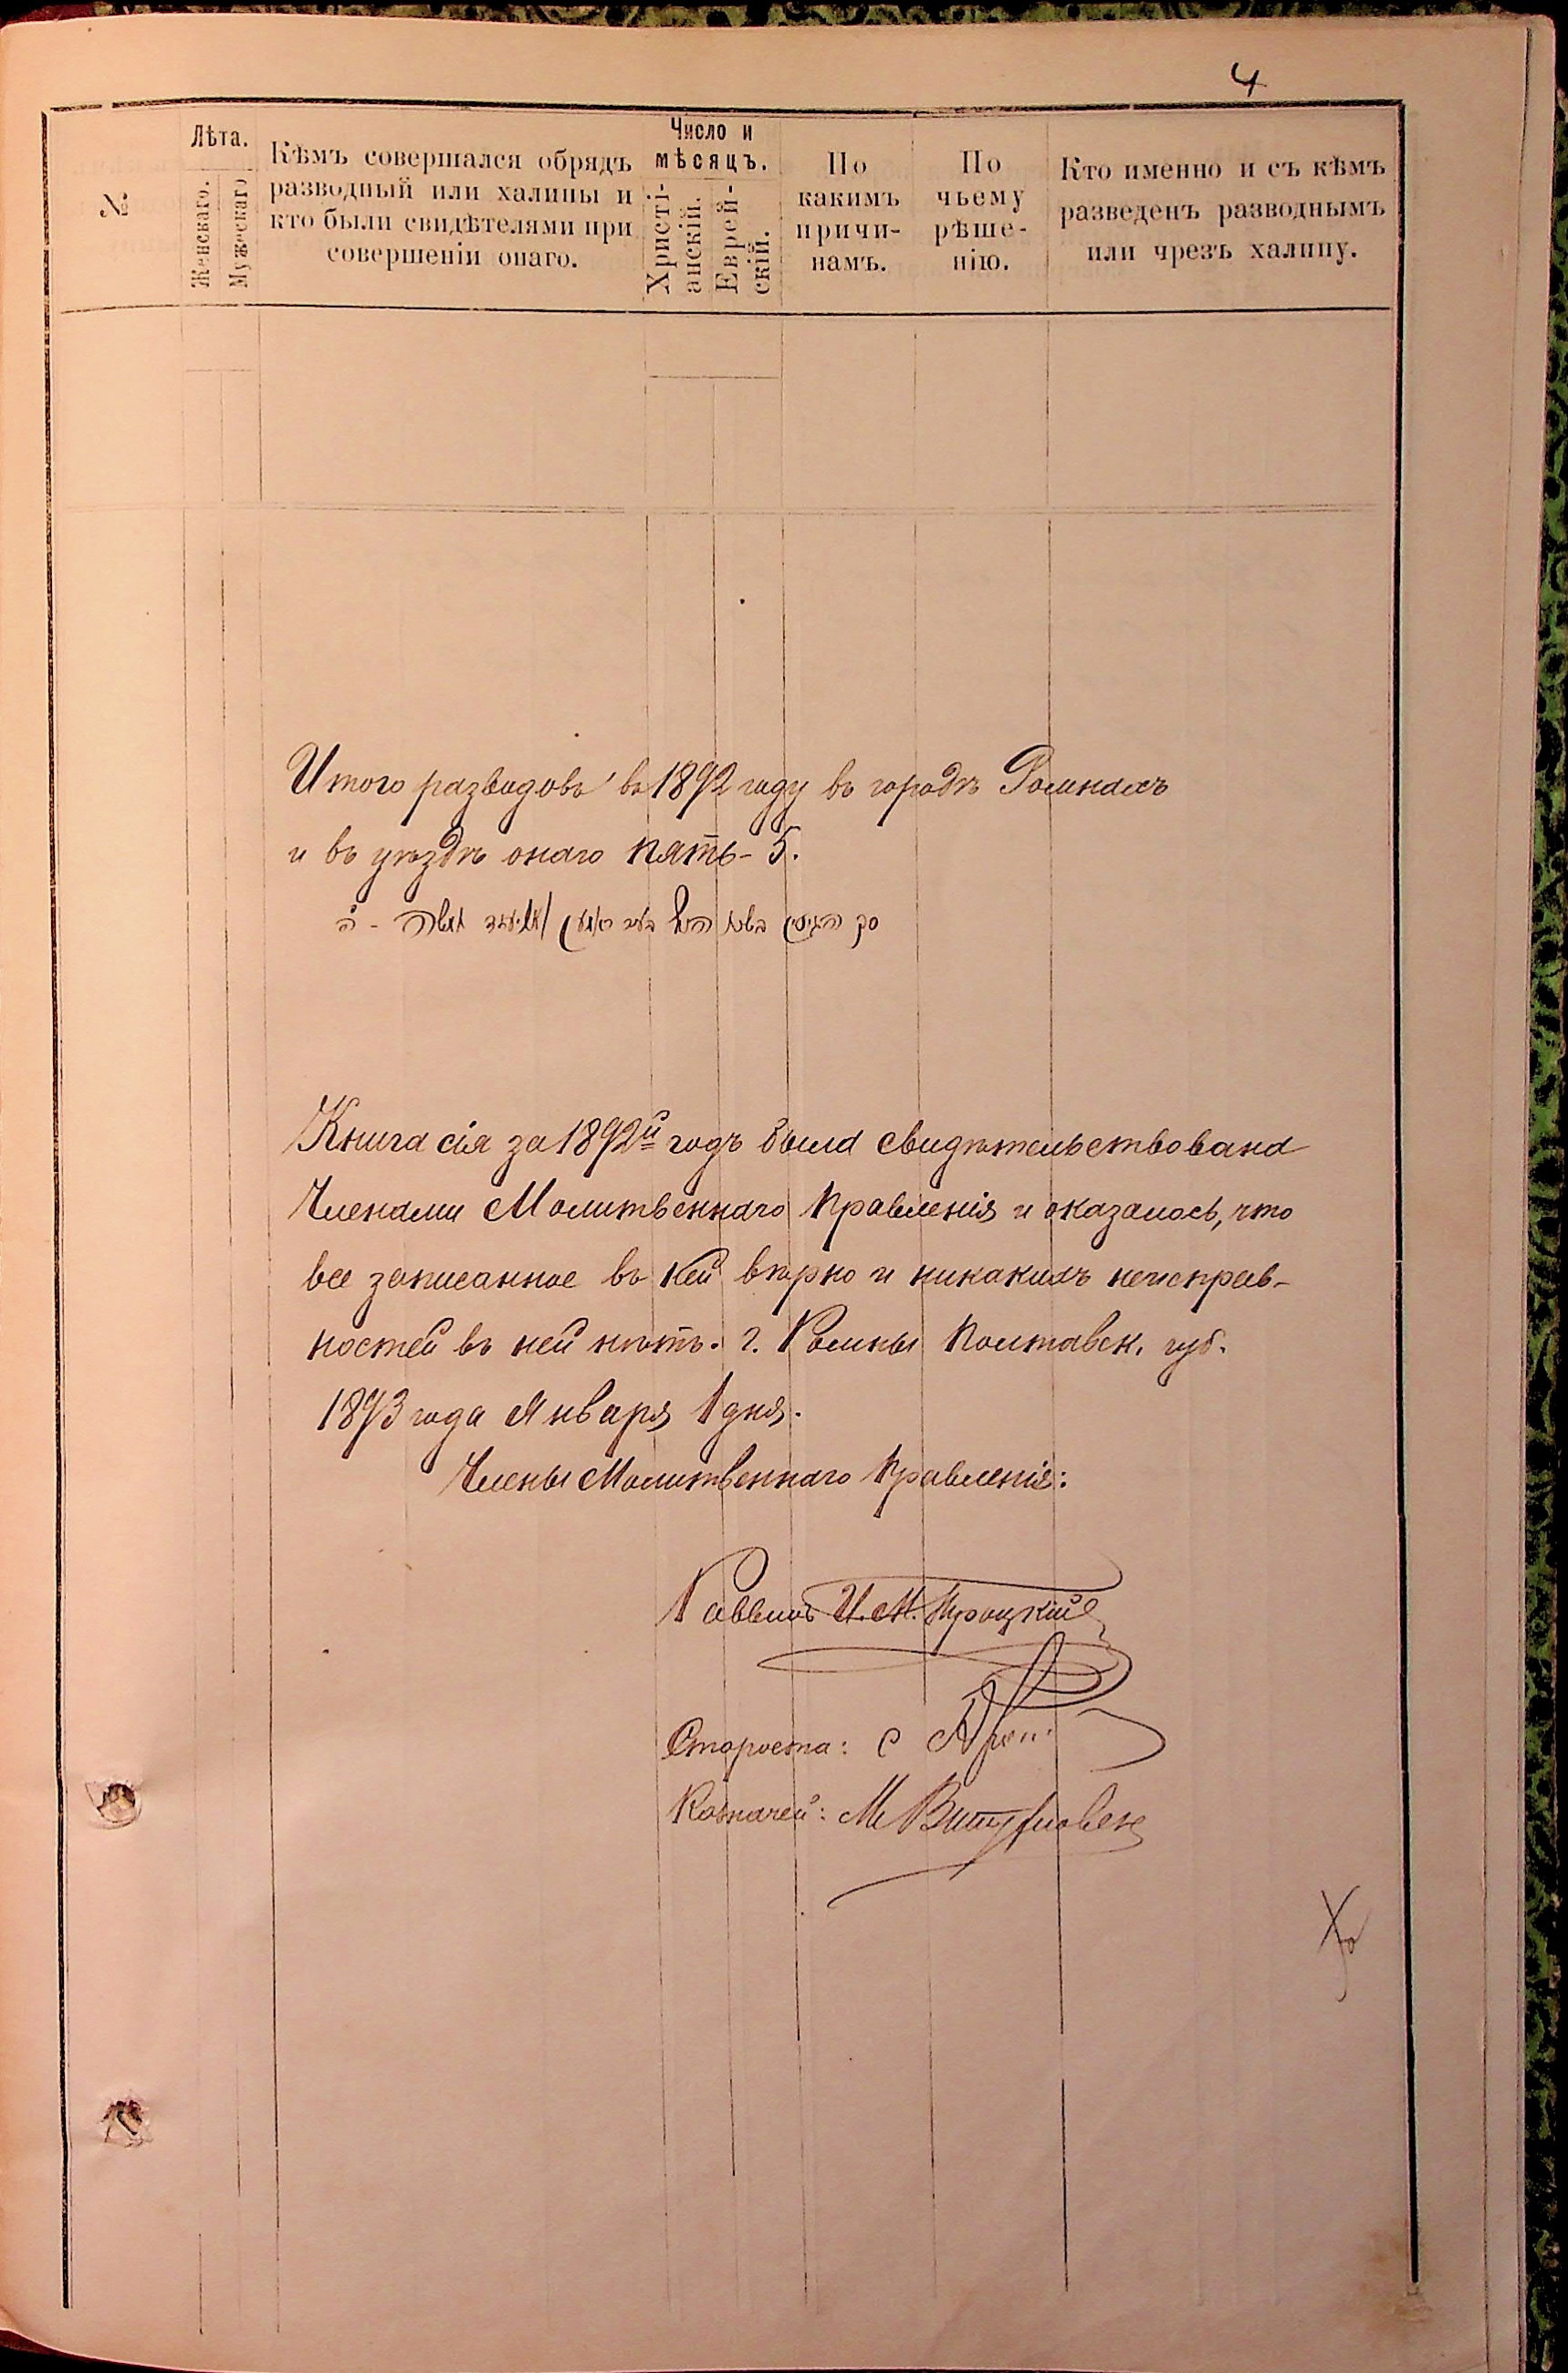 4
№
Лѣта.
Женскаго.
Мужескаго
Кѣмъ совершался обрядъ
разводный или халицы и
кто были свидѣтелями при
совершеніи онаго.
Число и
мѣсяцъ.
Христі-
анскій.
Еврей-
скій.
По
какимъ
причи-
намъ.
По
чьему
рѣше-
нію.
Кто именно и съ кѣмъ
разведенъ разводнымъ
или чрезъ халицу.
Итого разводовъ въ 1892 году въ городѣ Ромнахъ
и въ уѣздѣ онаго пять - 5.
סך הגיטין
Книга сія за 1892й годъ была свидѣтельствована
Членами Молитвеннаго Правленія и оказалось, что
все записанное въ ней вѣрно и никакихъ неисправ-
ностей въ ней нѣтъ. г. Ромны Полтавск. губ.
1893 года Января 1 дня.
Члены Молитвеннаго Правленія:
Раввинъ И. М.
Староста: С
Казначей: М